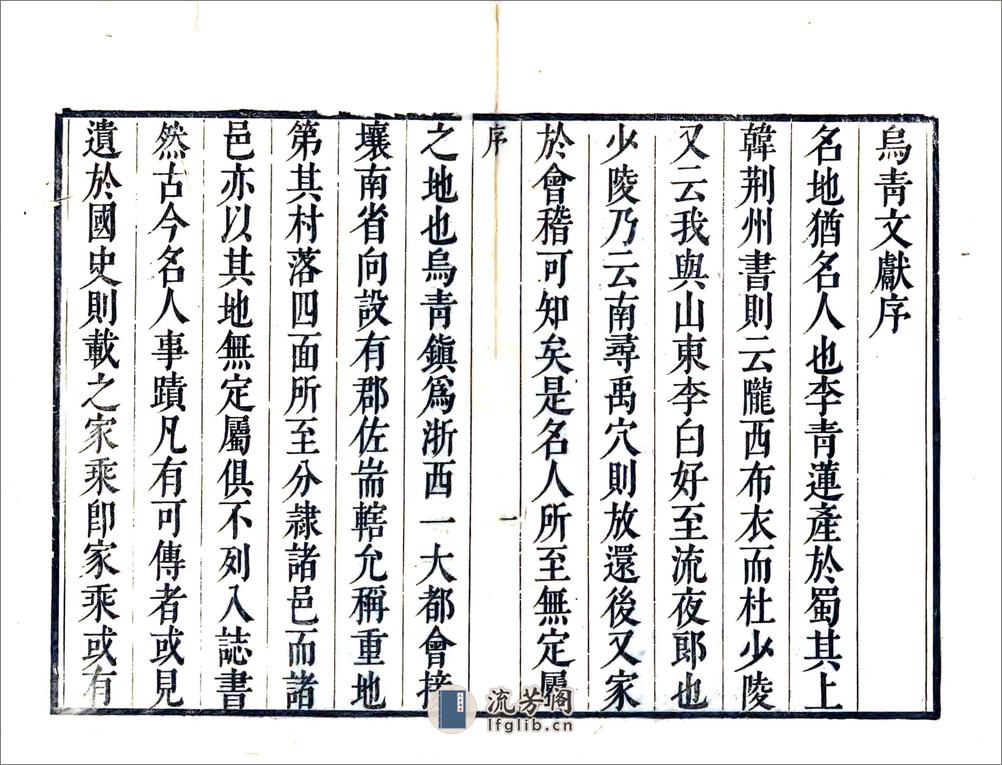 烏青文獻序
名地猶名人也李青蓮產於蜀其上
韓荆州書則云隴西布衣而杜少陵
又云我與山東李白好至流夜郎也
少陵乃云南尋禹穴則放還後又家
於會稽可知矣是名人所至無定屬
序
一
之地也烏青鎮爲浙西一大都會接
壤南省向設有郡佐耑轄允稱重地
第其村落四面所至分隷諸邑而諸
邑亦以其地無定屬俱不列入誌書
然古今名人事蹟凡有可傳者或見
遺於國史則載之家乘卽家乘或有
流芳阁
lfglib.cn